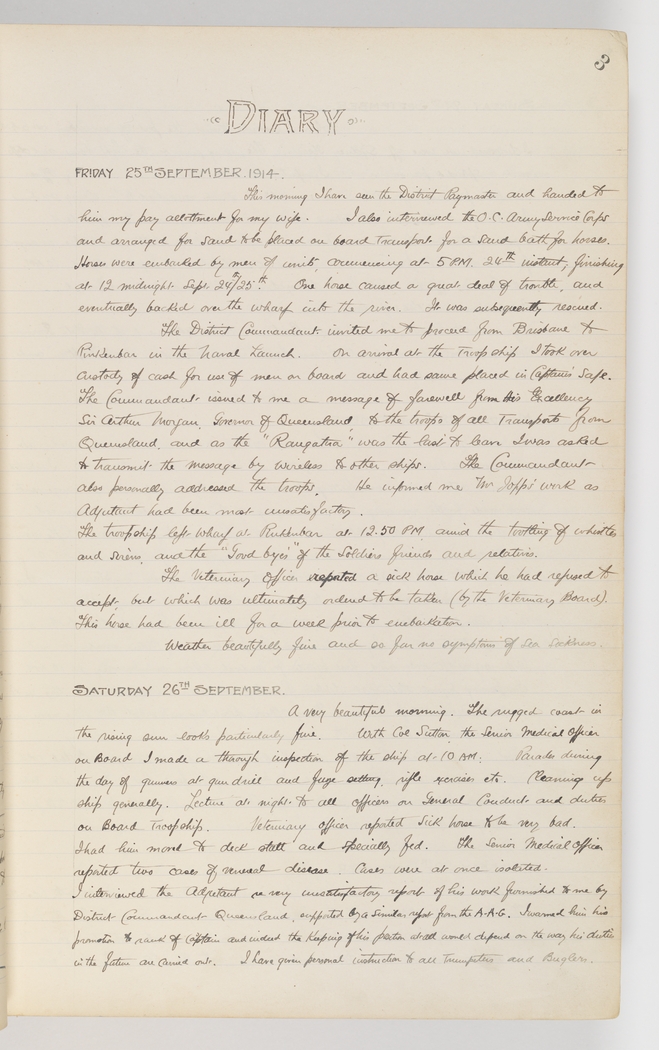 3
DIARY
FRIDAY 25TH SEPTEMBER. 1914.
This morning I have seen the District Paymaster and handed to
him my pay allottment for my wife. I also interviewed the O.C. Army Service Corps
and arranged for sand to be placed on board Transport for a sand bath for horses.
Horses were embarked by men of units, commencing at 5 P.M. 24th instant, finishing
at 12 midnight Sept 24/25th. One horse caused a great deal of trouble, and
eventually backed over the wharf into the river. It was subsequently rescued.
The District Commandant invited me to proceed from Brisbane to
Pinkenbar in the Naval Launch. On arrival at the Troopship I took over
custody of cash for use of men on board and had same placed in Captains' Safe.
The Commandant issued to me a message of farewell from His Excellency
Sir Arthur Morgan, Governor of Queensland, to the troops of all Transports from
Queensland, and as the "Rangatira" was the last to leave I was asked
to transmit the message by wireless to other ships. The Commandant
also personally addressed the troops. He informed me Mr Jopp's work as
Adjutant had been most unsatisfactory.
The troopship left wharf at Pinkenbar at 12.50 PM, amid the tootling of whistles
and sirens, and the "Good byes" of the Soldiers friends and relatives.
The Veterinary Officer reported a sick horse which he had refused to
accept, but which was ultimately ordered to be taken (by the Veterinary Board).
This horse had been ill for a week prior to embarkation.
Weather beautifully fine and so far no symptoms of Sea Sickness.
SATURDAY 26TH SEPTEMBER.
A very beautiful morning. The rugged coast in
the rising sun looks particularly fine. With Col Sutton, the Senior Medical Officer
on Board I made a through inspection of the ship at 10 AM. Parades during
the day of gunners at gun drill and fuze setting, rifle exercises etc. Cleaning up
ship generally. Lecture at night to all officers on General Conduct and duties
on Board Troopship. Veterinary officer reported Sick horse to be very bad.
I had him moved to deck stall and specially fed. The Senior Medical Officer
reported two cases of veneral disease. Cases were at once isolated.
I interviewed the Adjutant re very unsatisfactory report of his work furnished to me by
District Commandant Queensland, supported by a similar report from the A.A.G. I warned him his
promotion to rank of Captain and indeed the keeping of his position at all would depend on the way his duties
in the future are carried out. I have given personal instruction to all Trumpeters and Buglers.